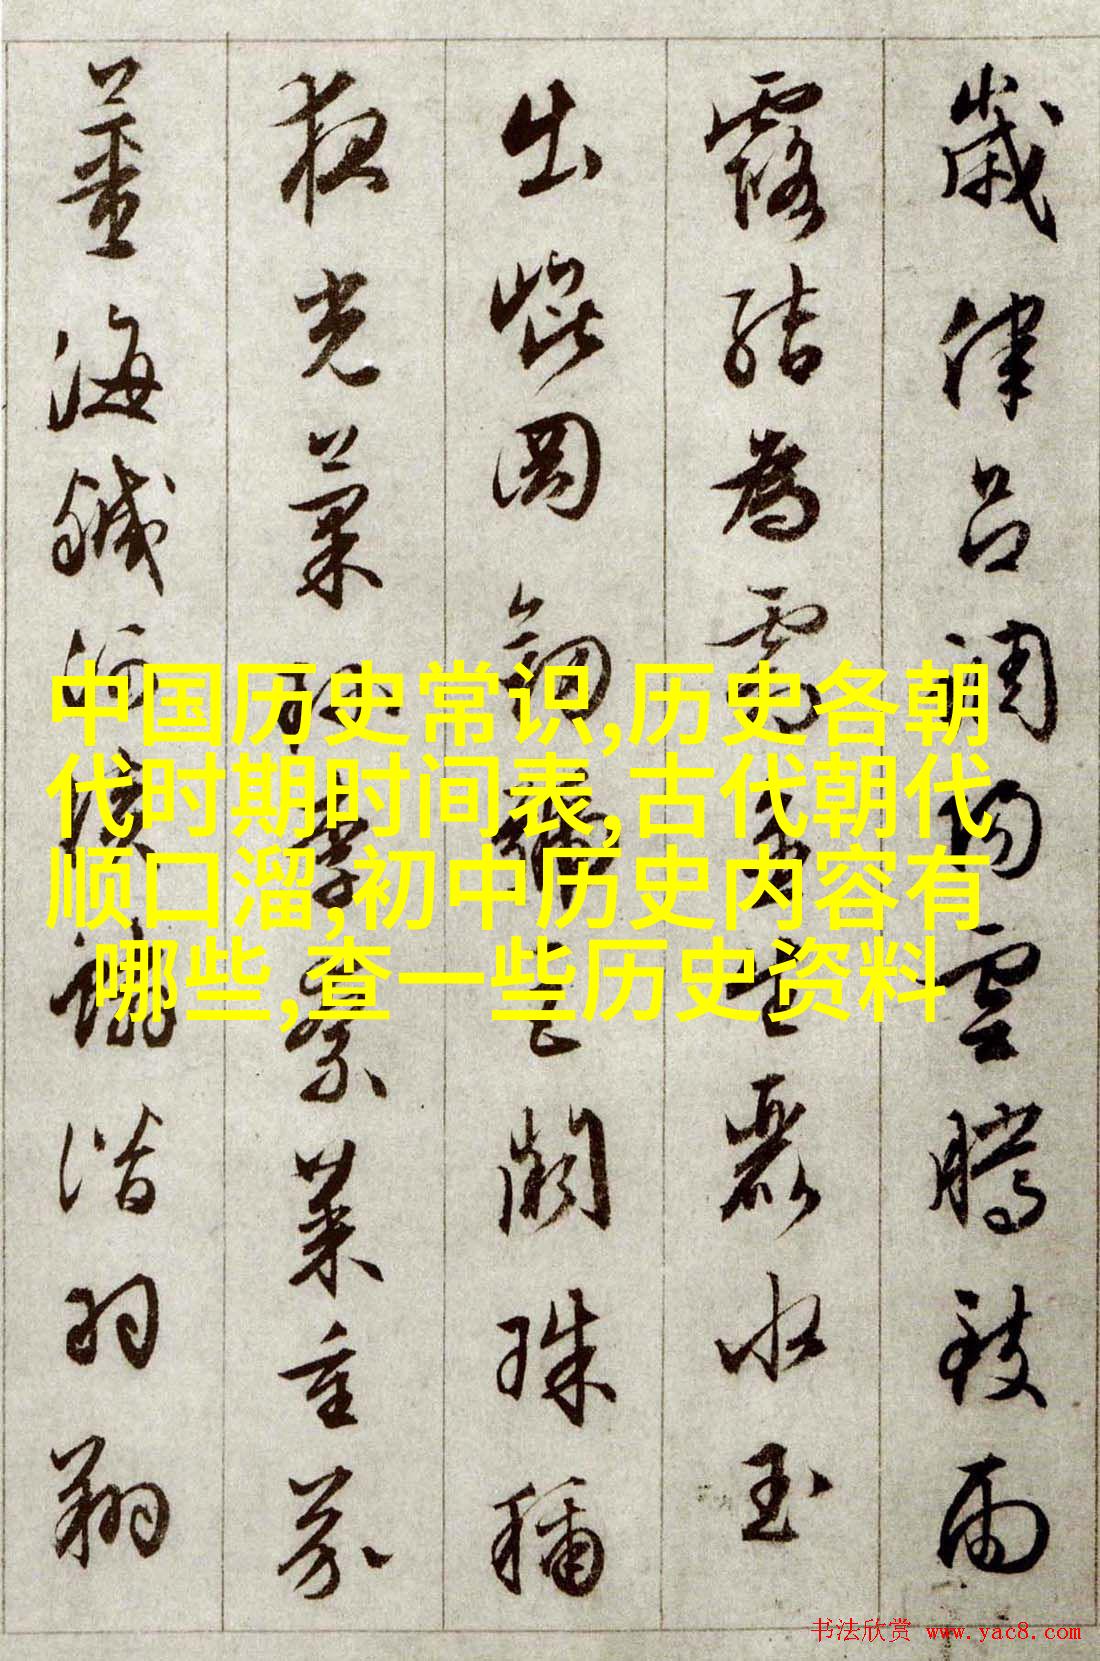 歲律呂調陽雲騰致雨
露結為霜金生麗水玉
出崐岡劒號巨闕珠稱
夜光菓珍李柰菜重芥
薑海鹹河淡鱗潛羽翔
中国历史常识,历史各朝
代时期时间表,古代朝代
顺口溜,初中历史内容有
哪些,查一些历史资料
书法欣赏 www.yac8.com